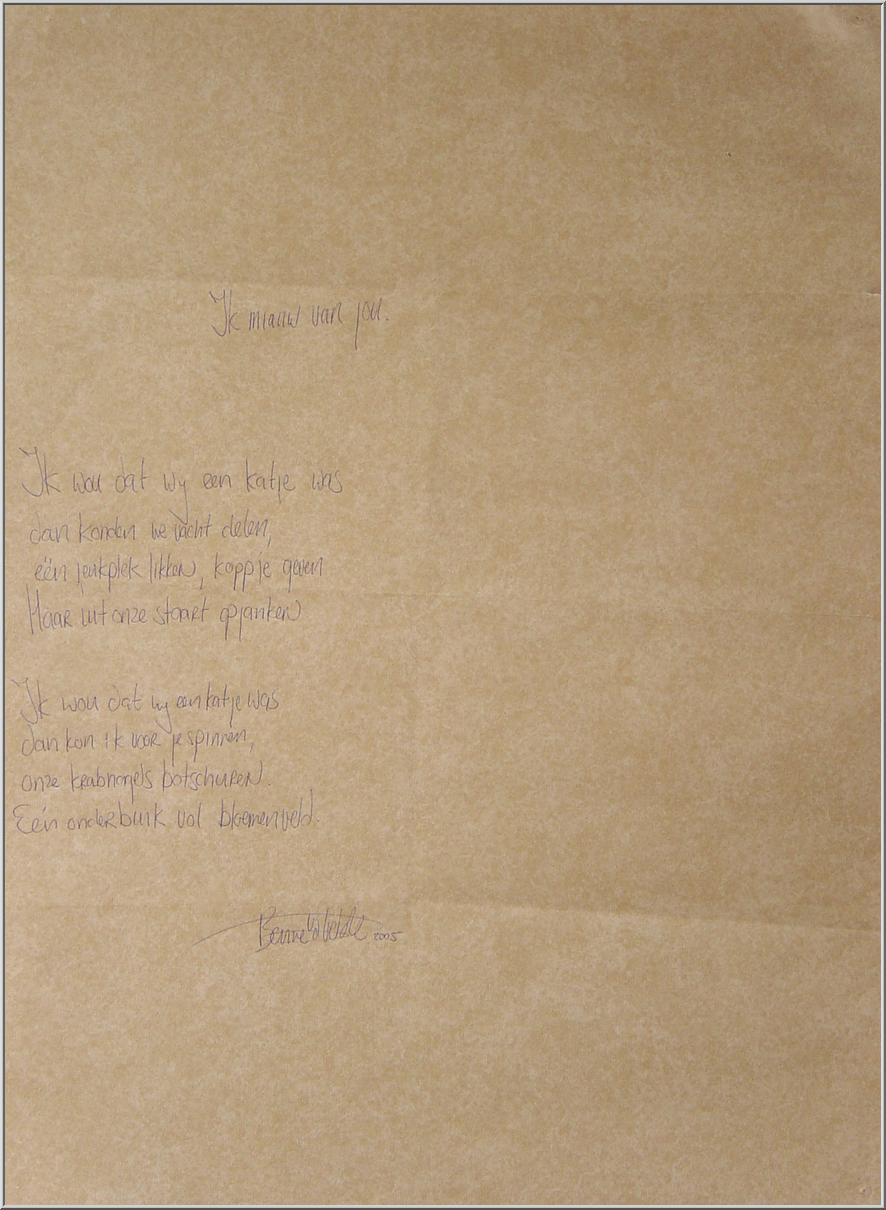 Ik miauw van jou.
Ik wou dat wy een katje was
dan konden we vacht delen,
eën jeukplek likken, kopje geven
Haar uit onze staart opjanken
Ik wou dat wy een katje was
dan kon ik voor je spinnen,
onze krabnagels botschuren.
Eén onderbuik vol bloemenveld.
2005